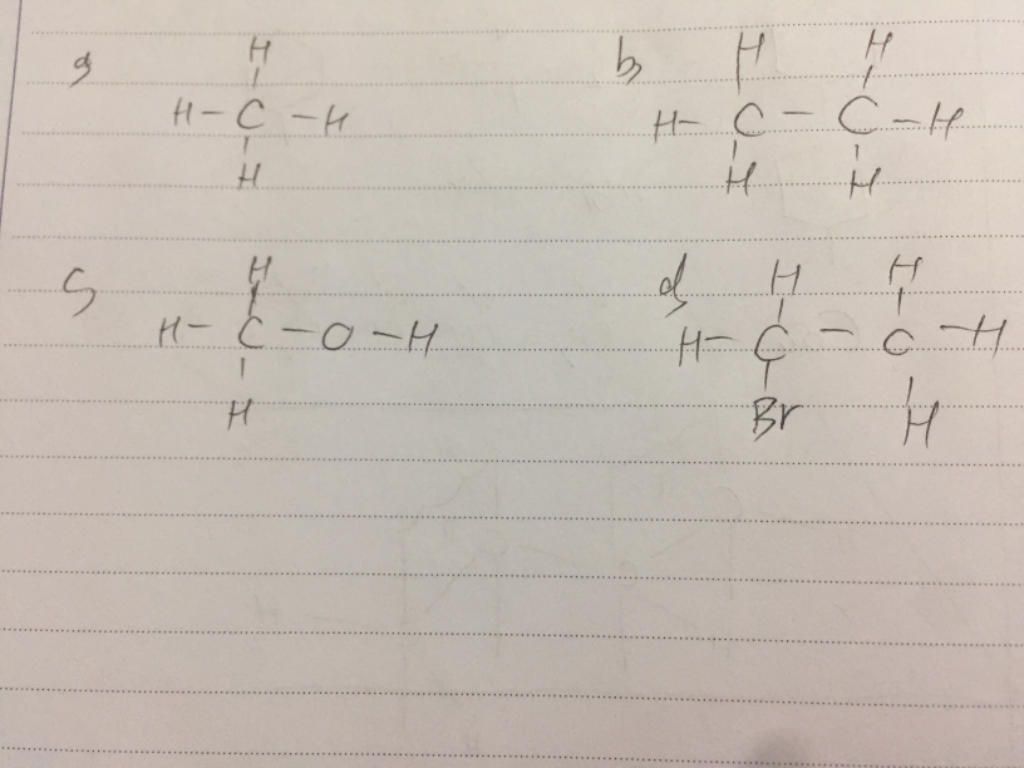 a, H b, H H
H-C-H H-C-C-H
H H H
c, H d, H H
H-C-O-H H-C-C-H
H Br H